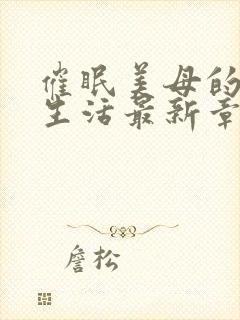 催眠美母的
生活最新章
詹松